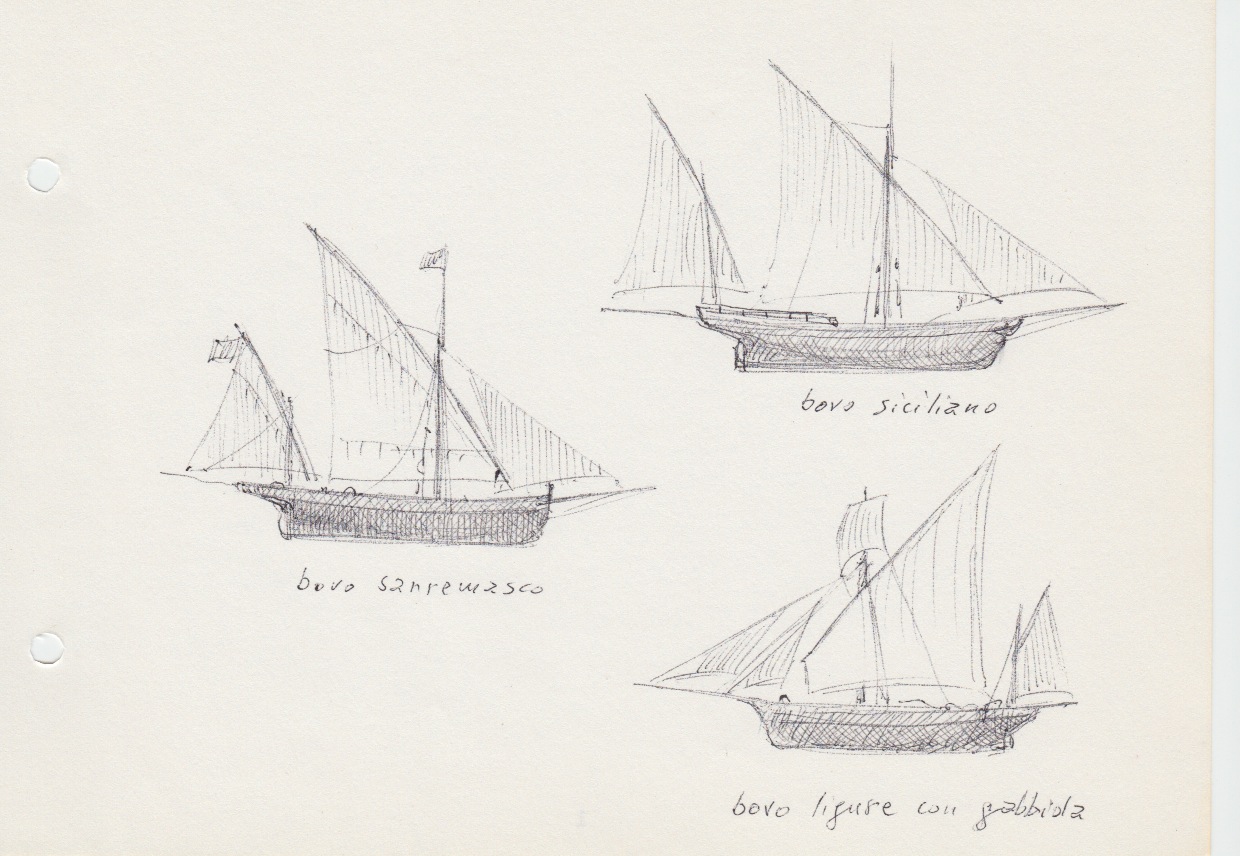 bovo siciliano
bovo sanremasco
bovo ligure con gabbiola